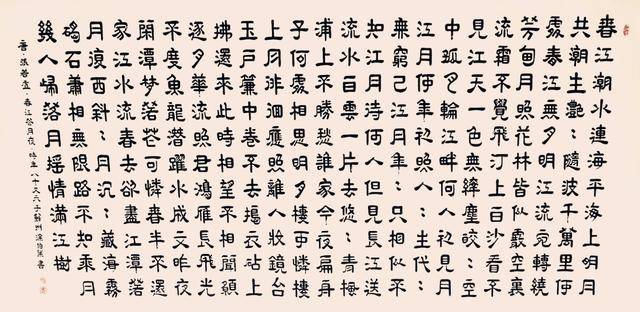 春江潮水連海平海上明月
共潮生灔：隨波千萬里何
處春江無月明江流宛轉繞
芳甸月照花林皆似霰空裏
流霜不覺飛汀上白沙看不
見江天一色無纖塵皎：空
中孤月輪江畔何人初見月
江月何年初照人：生代：
無窮已江月年：只相似不
知江月待何人但見長江送
流水白雲一片去悠：青楓
浦上不勝愁誰家今夜扁舟
子何處相思明月樓可憐樓
上月徘徊應照離人妝鏡台
玉戶簾中卷不去搗衣砧上
拂還來此時相望不相聞願
逐月華流照君鴻雁長飛光
不度魚龍潛躍水成文昨夜
閑潭夢落花可憐春半不還
家江水流春去欲盡江潭落
月復西斜：月沉：藏海霧
碣石瀟相無限路不知乘月
幾人歸落月搖情滿江樹
唐·張若虛·春江花月夜·時年八十又六于蘇州書